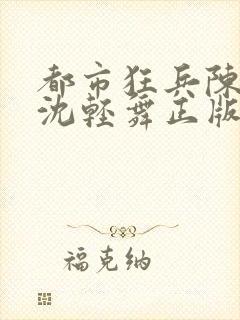 都市狂兵陈
沈轻舞正版
福克纳